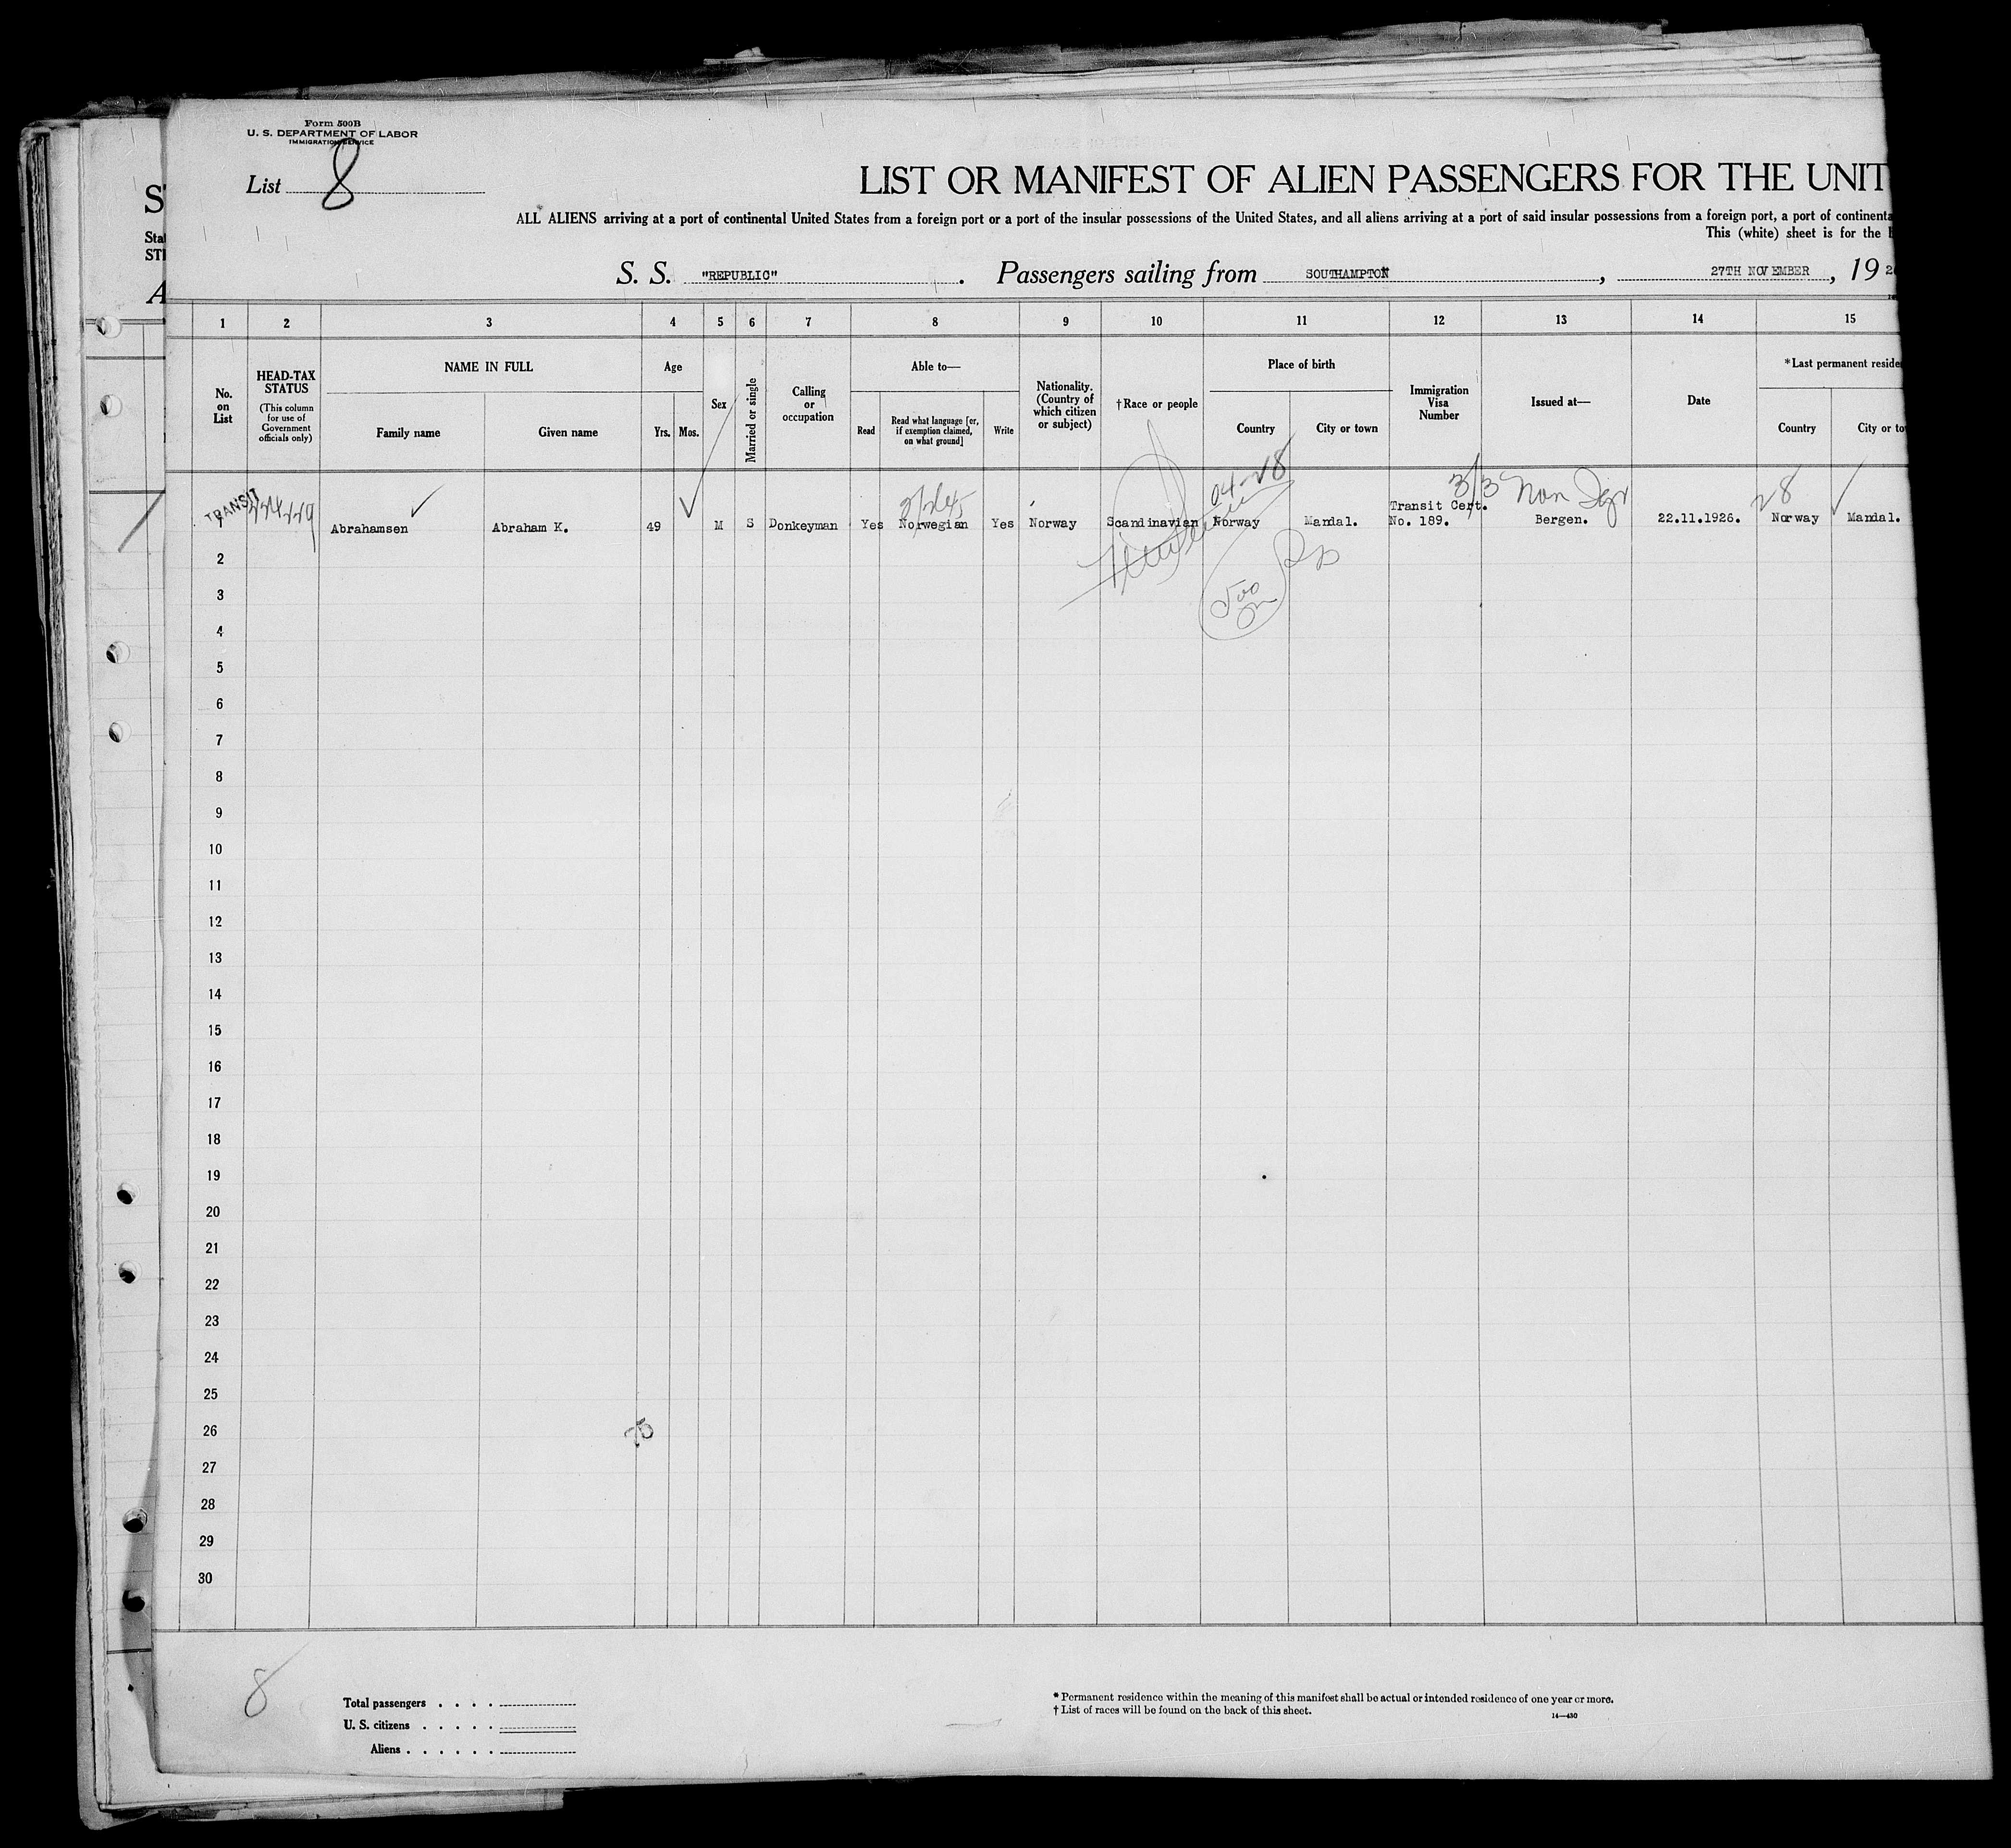 Form 500B
U. S. DEPARTMENT OF LABOR
IMMIGRATION SERVICE
List 8
LIST OR MANIFEST OF ALIEN PASSENGERS FOR THE UNIT
ALL ALIENS arriving at a port of continental United States from a foreign port or a port of the insular possessions of the United States, and all aliens arriving at a port of said insular possessions from a foreign port, a port of continenta
This (white) sheet is for the
S. S. "REPUBLIC". Passengers sailing from SOUTHAMPTON, 27TH NOVEMBER, 19
1 2 3 4 5 6 7 8 9 10 11 12 13 14 15
No. on List
HEAD-TAX STATUS
(This column for use of Government officials only)
NAME IN FULL
Family name
Given name
Age
Yrs.
Mos.
Sex
Married or single
Calling or occupation
Able to—
Read
Read what language [or, if exemption claimed, on what ground]
Write
Nationality. (Country of which citizen or subject)
†Race or people
Place of birth
Country
City or town
Immigration Visa Number
Issued at—
Date
*Last permanent reside
Country
City or to
TRANSIT
04-28
3/3
28
1 Abrahamsen Abraham K. 49 M S Donkeyman Yes Norwegian Yes Norway Scandinavian Norway Mandal. Transit Cert. No. 189. Bergen. 22.11.1926. Norway Mandal.
2
3
4
5
6
7
8
9
10
11
12
13
14
15
16
17
18
19
20
21
22
23
24
25
26
75
27
28
29
30
8
Total passengers . . . .
U. S. citizens . . . . .
Aliens . . . . . .
* Permanent residence within the meaning of this manifest shall be actual or intended residence of one year or more.
† List of races will be found on the back of this sheet.
14—430